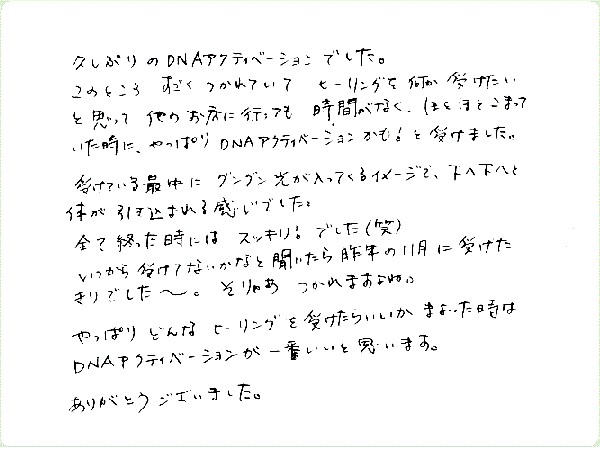 久しぶりのDNAアクティベーションでした。
このところ すごくつかれていて ヒーリングを何か受けたい
と思って 他のお店に行っても 時間がなく、ほとほとこまって
いた時に、やっぱりDNAアクティベーションかも!と受けました。
受けている最中に グングン光が入ってくるイメージで、下へ下へと
体が引き込まれる感じでした。
全て終った時には スッキリ!でした(笑)
いつから受けてないかなと聞いたら昨年の11月に受けた
きりでした〜。そりゃあ つかれますよね。
やっぱりどんなヒーリングを受けたらいいかまよった時は
DNAアクティベーションが一番いいと思います。
ありがとうございました。